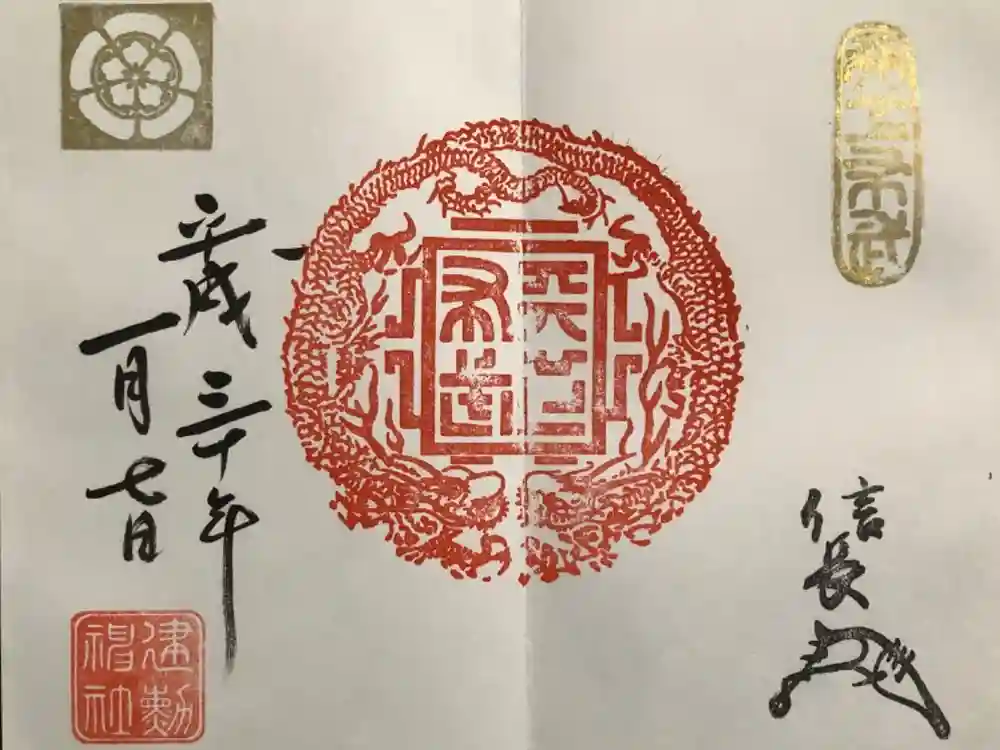 天下布武
信長
天下布武
平成三十年
一月七日
建勲
神社